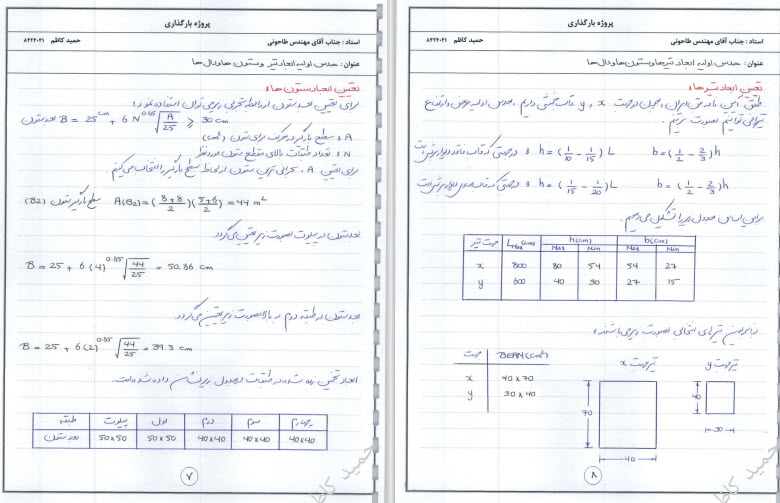 پروژه بارگذاری
استاد : جناب آقای مهندس طاحونی
حمید کاظم ۸۴۲۴۰۲۱
عنوان : حدس اولیه ابعاد تیر و ستون ها و دال ها
تعیین ابعاد ستون ها:
برای تعیین بعد ستون از رابطه تجربی زیر می توان استفاده نمود:
بعد ستون B = 25 cm + 6 N^0.85 √(A/25) ≥ 30 cm
A : سطح بارگیر در هر طبقه برای ستون (cm²)
N : تعداد طبقات بالای مقطع ستون مورد نظر
برای تعیین A ، بحرانی ترین ستون از لحاظ سطح بارگیر را انتخاب می کنیم.
سطح بارگیر ستون (B2) A(B2) = ((8+8)/2)((5+6)/2) = 44 m²
بعد ستون در پیلوت بصورت زیر تعیین می گردد.
B = 25 + 6(4)^0.85 √(44/25) = 50.86 cm
بعد ستون در طبقه دوم به بالا بصورت زیر تعیین می گردد.
B = 25 + 6(2)^0.85 √(44/25) = 39.3 cm
ابعاد تخمین زده شده در طبقات در جدول زیر نشان داده شده است.
طبقه پیلوت اول دوم سوم چهارم
بعد ستون 50x50 50x50 40x40 40x40 40x40
۷
پروژه بارگذاری
استاد : جناب آقای مهندس طاحونی
حمید کاظم ۸۴۲۴۰۲۱
عنوان : حدس اولیه ابعاد تیرها و ستون ها و دال ها
تعیین ابعاد تیرها:
طبق آیین نامه بتن ایران، چون در جهت x و y قاب خمشی داریم، حدس اولیه عرض و ارتفاع
تیر را می توانیم بصورت بزنیم.
در جهتی که قاب فاقد دیوار برشی است : h = (1/10 - 1/15) L b = (1/2 - 2/3) h
در جهتی که قاب دیوار برشی است : h = (1/15 - 1/20) L b = (1/2 - 2/3) h
براین اساس جدول زیر را تشکیل می دهیم.
جهت تیر Lmax (cm) h(cm) b(cm)
Max Min Max Min
x 800 80 54 54 27
y 600 40 30 27 15
بنابراین تیرهای انتخابی بصورت زیر می باشند:
جهت BEAM (cm²)
x 40 x 70
y 30 x 40
تیر جهت x
تیر جهت y
70
40
40
30
۸
حمید کاظم
حمید کاظم